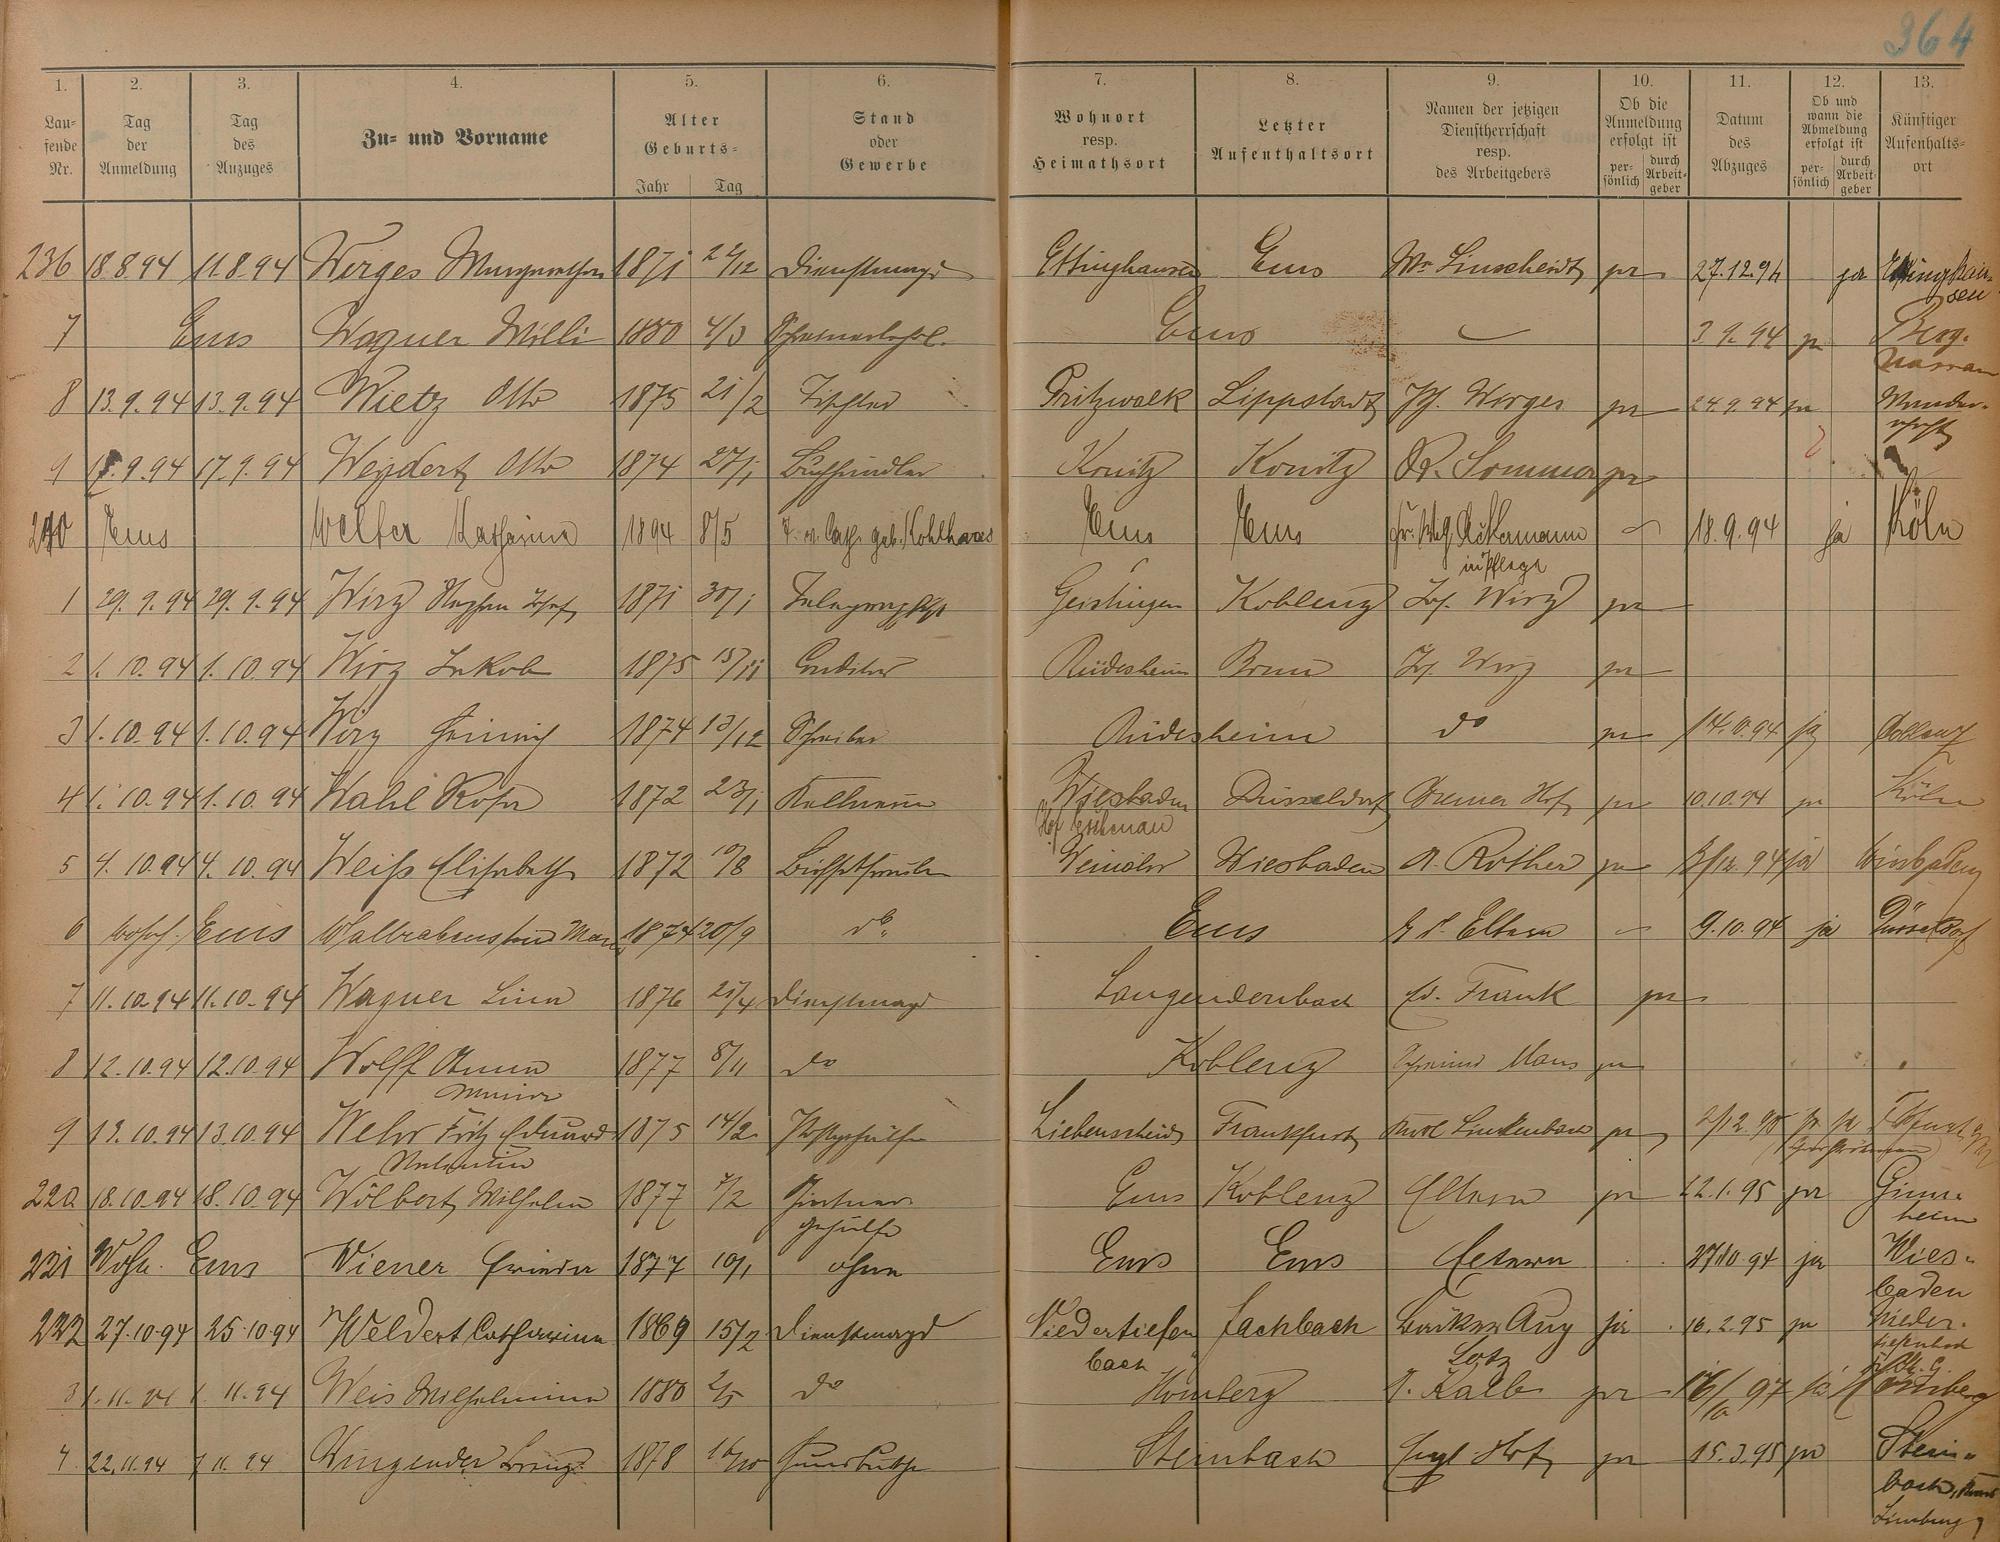 364
1. 2. 3. 4. 5. 6. 7. 8. 9. 10. 11. 12. 13.
Lau- fende Nr. Tag der Anmeldung Tag des Anzuges Zu- und Vorname Alter Geburts- Jahr Tag Stand oder Gewerbe Wohnort resp. Heimathsort Letzter Aufenthaltsort Namen der jetzigen Dienstherrschaft resp. des Arbeitgebers Ob die Anmeldung erfolgt ist per- sönlich durch Arbeit- geber Datum des Abzuges Ob und wann die Abmeldung erfolgt ist per- sönlich durch Arbeit- geber Künftiger Aufenthalts- ort
236 18.8.94 11.8.94 Werges Margarethe 1871 22/12 Dienstmagd Ettinghausen Ems Wv Linscheidt ja 27.12.94 ja Ettinghau-
sen
7 Ems Wagner Willi 1880 4/3 Ems 3.9.94 ja Berg.
Nassau
8 13.9.94 13.9.94 Wietz Otto 1875 21/2 Tischler Pritzwalk Lippstadt Jos. Werges ja 24.9.94 ja Wander-
schaft
9 17.9.94 17.9.94 Weydert Otto 1874 27/1 Buchhändler Konitz Konitz R. Sommer ja
240 Ems Welter Katharina 1894 8/5 geb. Kohlhaas Ems Ems Ackermann 18.9.94 ja Köln
in Pflege
1 29.9.94 29.9.94 Wirz Stephan Josef 1871 30/1 Telegraphist Geislingen Koblenz Jos. Wirz ja
2 1.10.94 1.10.94 Wirz Jakob 1875 15/11 Conditor Rüdesheim Bonn Jos. Wirz ja
3 1.10.94 1.10.94 Wirz Heinrich 1874 13/12 Schreiber Rüdesheim do ja 14.10.94 ja
4 1.10.94 1.10.94 Wahl Rosa 1872 23/1 Kellnerin Wiesbaden Düsseldorf Bremer Hof ja 10.10.94 ja Köln
5 4.10.94 4.10.94 Weiß Elisabeth 1872 10/8 Weimar Wiesbaden A. Rother ja 94 ja Wiesbaden
6 Ems 1874 20/9 do Ems Eltern 9.10.94 ja Düsseldorf
7 11.10.94 11.10.94 Wagner Lina 1876 25/4 Dienstmagd Langendernbach Ed. Frank ja
8 12.10.94 12.10.94 Wolff Anna 1877 8/11 do Koblenz Maus ja
Maria
9 13.10.94 13.10.94 Wehr Fritz Eduard 1875 14/2 Postgehülfe Liebenscheid Frankfurt Karl Linkenbach ja
Valentin
220 18.10.94 18.10.94 Wölbert Wilhelm 1877 7/2 Gärtner Ems Koblenz Eltern ja 22.1.95 ja Ginn-
gehülfe heim
221 Wohn. Ems Wiener Frieda 1877 10/1 ohne Ems Ems Eltern 27/10 94 ja Wies-
baden
222 27.10.94 25.10.94 Weldert Catharina 1869 15/2 Dienstmagd Niedertiefen Fachbach Bäcker Aug ja 16.2.95 ja Nieder-
bach Lotz tiefenbach
3 1.11.94 1.11.94 Weis Wilhelmine 1880 2/5 do Homberg A. Kalb ja 97 ja Homberg
4 22.11.94 11.94 Wingender 1878 Hausbursche Steinbach Engl Hof ja 15.3.95 ja Stein-
bach,
Limburg